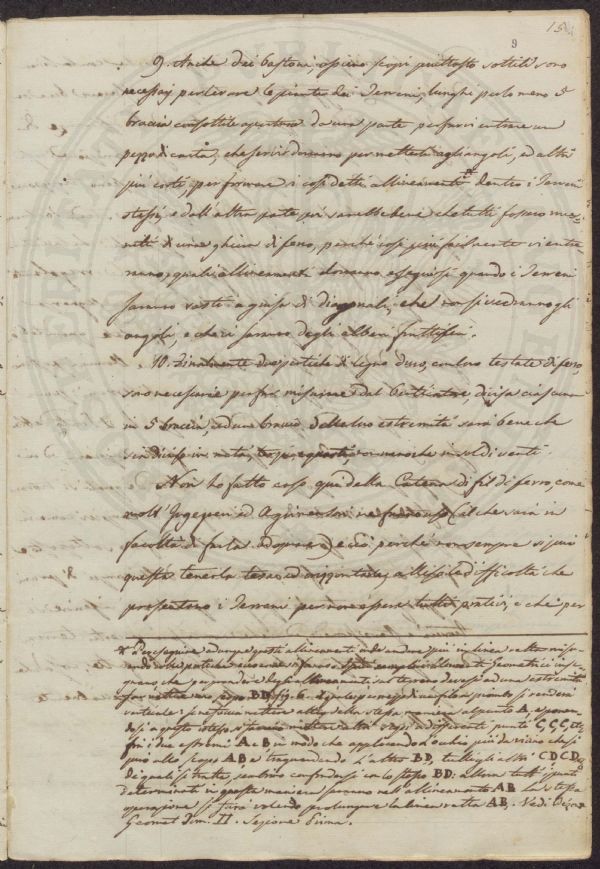 15
9
9. Anche dei bastoni ossieno scopi piuttosto sottili sono
necessarj per levare le piante dei Terreni, lunghi per lo meno 5
braccia con sottile apertura da una parte per farvi entrare un
pezzo di carta, che servir dovranno per metterli agli angoli, ed altri
più corti, per formare i così detti allineamenti * dentro i Terreni
stessi, e dall'altra parte poi sarebbe bene che tutti fossero mu=
niti di una ghiera di ferro, perchè così più facilmente vi entre
ranno, quali allineamenti dovranno eseguirsi quando i Terreni
saranno vasti a guisa di diagonali, che non si vedranno gli
angoli, e che vi saranno degli alberi fruttiferi.
10. Finalmente due pertiche di legno duro, con loro testate di ferro,
sono necessarie per far misurare dal Centriatore, divisa ciascuna
in 5 braccia, ed un braccio delle loro estremità sarà bene che
sia diviso in metà, non meno che in soldi venti.
Non ho fatto caso qui della Catena di fil di ferro, come
molt' Ingegneri ed Agrimensori ne fanno uso (il che sarà in
facoltà di farla adoprare) e ciò perchè non sempre si può
questa tenerla tesa, ed orizzontale, a difficoltà che
presentano i Terreni per non essere tutti pratici, e che per
* Per eseguire adunque questi allineamenti onde andare più in linea retta misu=
rando colle pertiche
quano che per prendere degli allineamenti sul terreno devesi ad una estremità
far mettere uno scopo BD, fig. 6.
verticale: si ne faccia mettere altro della stessa maniera al punto A, e ponen=
dosi a questo istesso, si facciano mettere altri scopi a differenti punti C, C, C, etc
fra i due estremi A e B in modo che applicando l'occhio più da vicino che si
può allo scopo AB e traguardando l'altro BD, tutti gli altri CD CD CD
de quali si tratta, sembrino confondersi con lo stesso BD: allora tutti i punti
determinati in questa maniera saranno nell'allineamento AB. La stessa
operazione si farà volendo prolungare la linea retta AB. Vedi
Geomet. Tom. II. Sezione Prima.